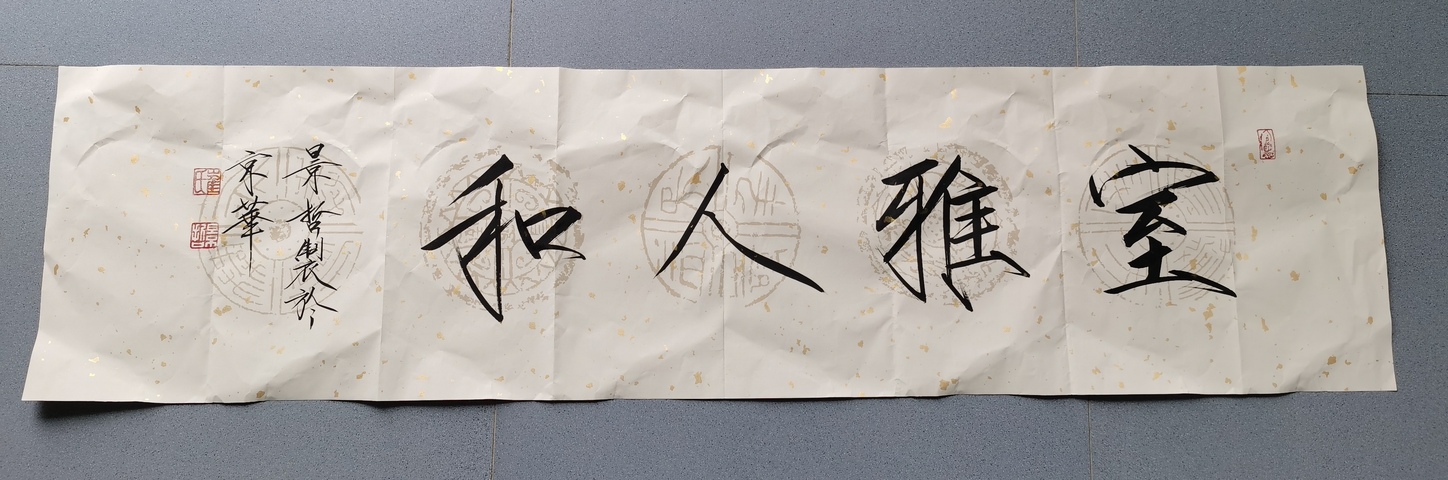 室雅人和
景哲制裝於
京華